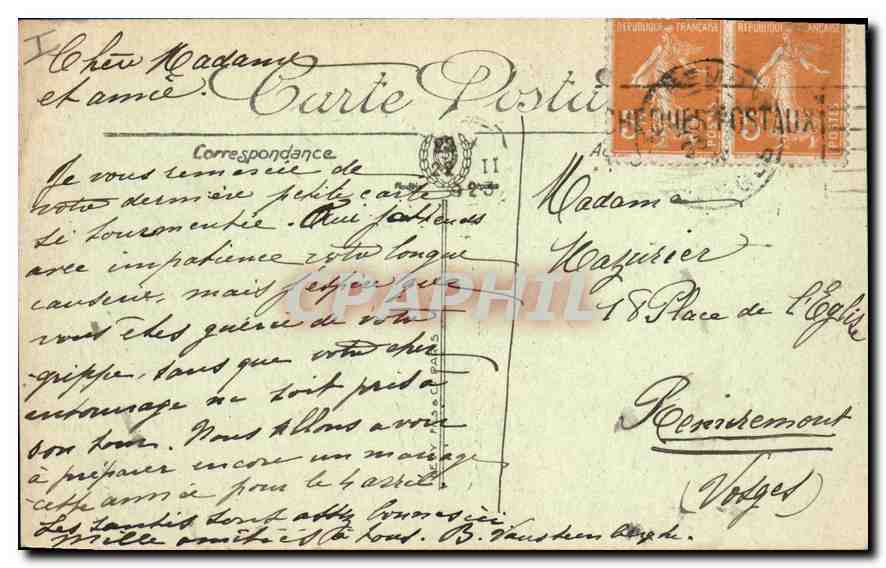 I
Chère Madame
et amie.
Carte Postale
Correspondance
Je vous remercie de
votre dernière petite carte
si tourmentée. Oui j'attends
avec impatience votre longue
causerie, mais j'espère que
vous êtes guérie de votre
grippe, sans que votre cher
entourage ne soit pris à
son tour. Nous allons avoir
à préparer encore un mariage
cette année pour le 4 avril.
Les santés sont assez bonnes ici
Mille amitiés à tous. B. Vansteenberghe.
LEVY FILS & Cie PARIS
CPAPHIL
REPUBLIQUE FRANÇAISE
REPUBLIQUE FRANÇAISE
5c POSTES
5c POSTES
CHEQUES POSTAUX
Madame
Mazurier
18 Place de l'Église
Remiremont
(Vosges)